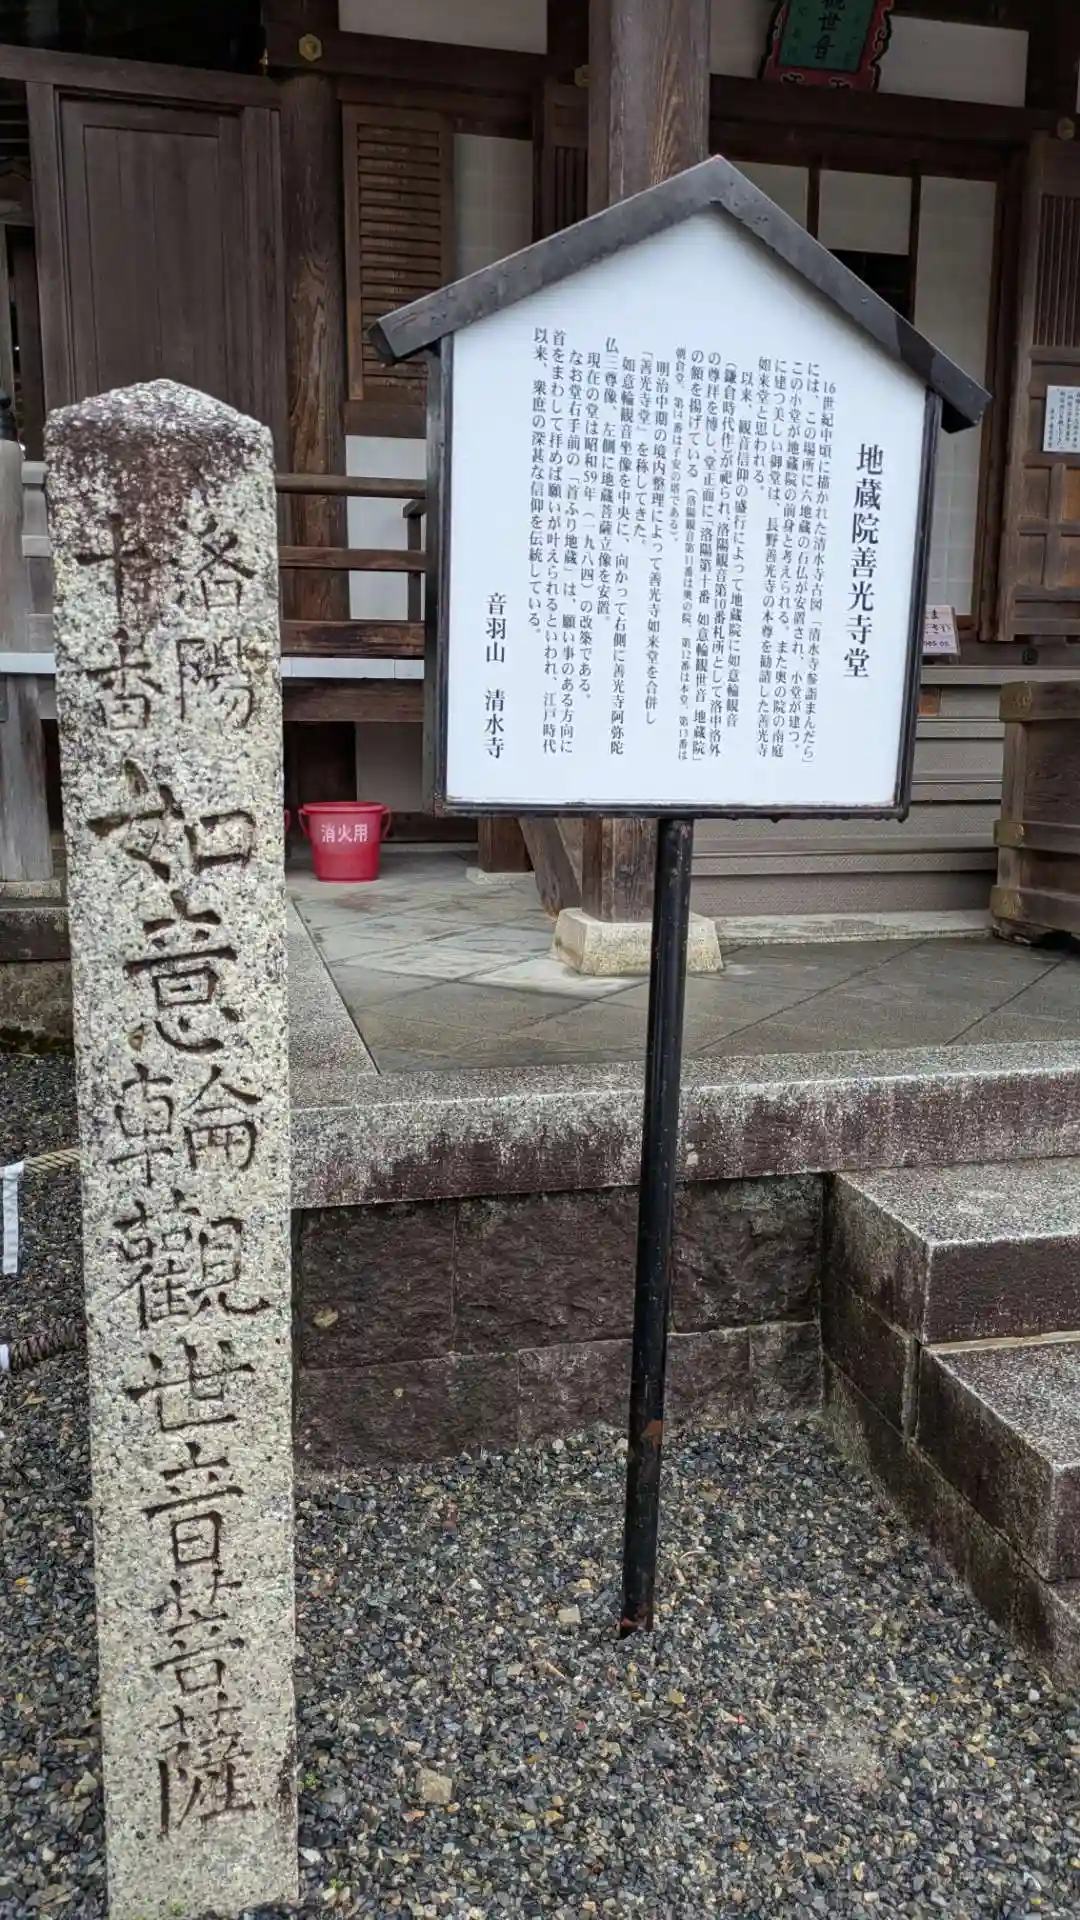 地蔵院善光寺堂
16世紀中頃に描かれた清水寺古図「清水寺参詣まんだら」
には、この場所に六地蔵の石仏が安置され、小堂が建つ。
この小堂が地蔵院の前身と考えられる。また奥の院の南庭
に建つ美しい御堂は、長野善光寺の本尊を勧請した善光寺
如来堂と思われる。
以来、観音信仰の盛行によって地蔵院に如意輪観音
(鎌倉時代作)が祀られ、洛陽観音第10番札所として洛中洛外
の尊拝を博し、堂正面に「洛陽第十番 如意輪観世音 地蔵院」
の額を揚げている(洛陽観音第11番は奥の院、第12番は本堂、第13番は
朝倉堂、第14番は子安の塔である)。
明治中期の境内整理によって善光寺如来堂を合併し
「善光寺堂」を称してきた。
如意輪観音坐像を中央に、向かって右側に善光寺阿弥陀
仏三尊像、左側に地蔵菩薩立像を安置。
現在の堂は昭和59年(一九八四)の改築である。
なお堂右手前の「首ふり地蔵」は、願い事のある方向に
首をまわして拝めば願いが叶えられるといわれ、江戸時代
以来、衆庶の深甚な信仰を伝統している。
音羽山 清水寺
洛陽
十番
如意輪觀世音菩薩
消火用
觀世音